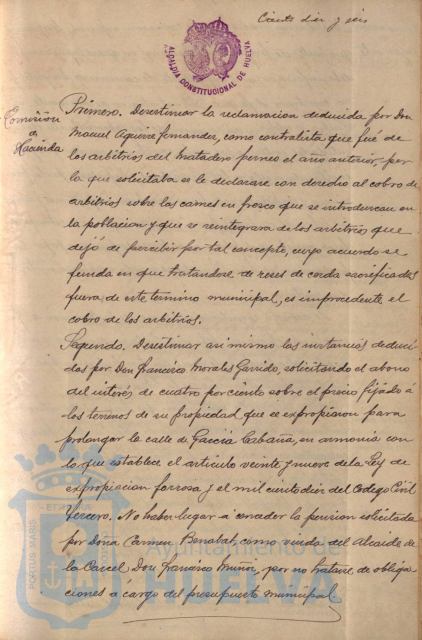 Ciento diez y seis
ALCALDIA CONSTITUCIONAL DE HUELVA
Comisión
de
Hacienda
Primero. Desestimar la reclamacion deducida por Don
Manuel Aguirre Fernandez, como contratista que fué de
los arbitrios del Matadero público el año anterior, por
la que solicitaba se le declarase con derecho al cobro de
arbitrios sobre las carnes en fresco que se introduzcan en
la poblacion y que se reintegrara de los arbitrios que
dejó de percibir por tal concepto, cuyo acuerdo se
funda en que tratandose de reses de cerda sacrificadas
fuera de este termino municipal, es improcedente el
cobro de los arbitrios.
Segundo. Desestimar asi mismo las instancias deduci
das por Don Francisco Morales Garrido, solicitando el abono
del interés de cuatro por ciento sobre el precio fijado á
los terrenos de su propiedad que se expropiaron para
prolongar la calle de Garcia Cabaña, en armonia con
lo que establece el articulo veinte y nueve de la Ley de
expropiacion forzosa y el mil ciento diez del Codigo Civil
Tercero. No haber lugar á conceder la pension solicitada
por Doña Carmen Benabat, como viuda del Alcaide de
la Carcel Don Francisco Muñoz, por no tratarse de obliga
ciones á cargo del presupuesto municipal.
PORTUS MARIS
Ayuntamiento de
HUELVA